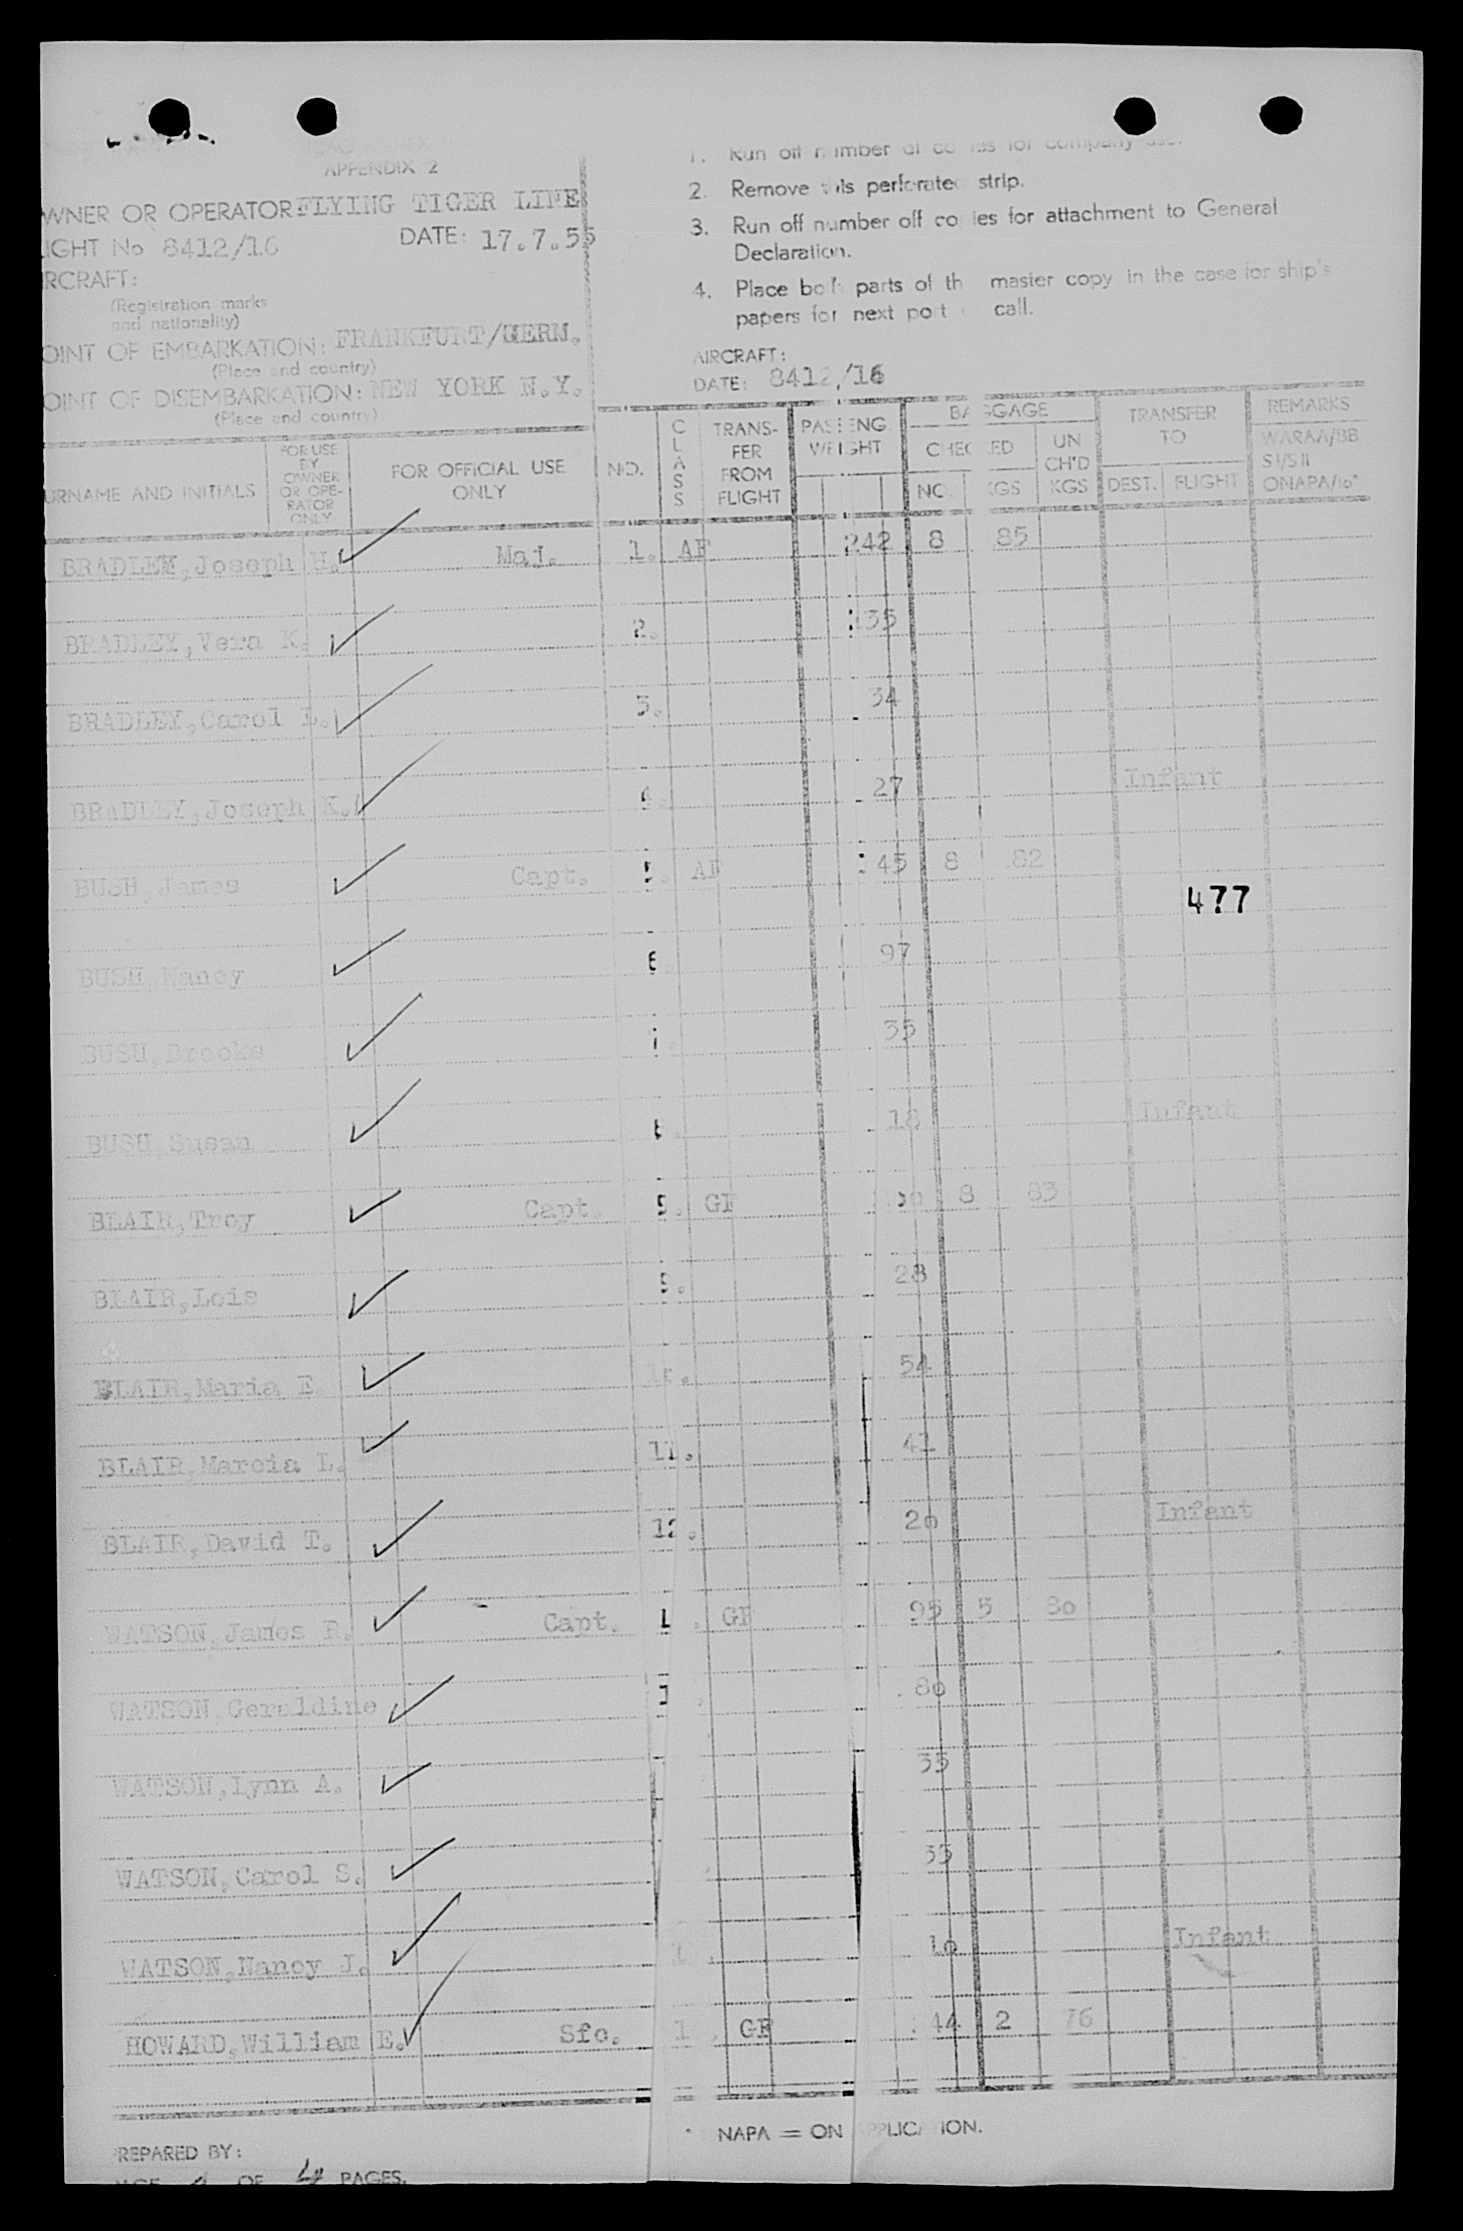 APPENDIX 2
WNER OR OPERATOR FLYING TIGER LINE
IGHT No 8412/16 DATE: 17.7.55
RCRAFT:
(Registration marks
and nationality)
OINT OF EMBARKATION: FRANKFURT/GERM.
(Place and country)
OINT OF DISEMBARKATION: NEW YORK N.Y.
(Place and country)
2. Remove this perforated strip.
3. Run off number off copies for attachment to General
Declaration.
4. Place both parts of th master copy in the case for ship's
papers for next port call.
AIRCRAFT:
DATE: 8412/16
URNAME AND INITIALS
FOR USE
BY
OWNER
OR OPE-
RATOR
ONLY
FOR OFFICIAL USE
ONLY
NO.
CLASS
TRANS-
FER
FROM
FLIGHT
PASSENG
WEIGHT
BAGGAGE
CHECKED
NO. KGS
UN
CH'D
KGS
TRANSFER
TO
DEST. FLIGHT
REMARKS
WARAA/BB
SI/SII
ONAPA/io*
BRADLEY, Joseph H. Maj. 1. AF 242 8 85
BRADLEY, Vera K. 2. 135
BRADLEY, Carol L. 3. 34
BRADLEY, Joseph K. 4. 27 Infant
BUSH, James Capt. 5. AF 145 8 82
477
BUSH, Nancy 6 97
BUSH, Brooks 7. 35
BUSH, Susan 18 Infant
BLAIR, Troy Capt. GF 8 83
BLAIR, Lois 28
BLAIR, Maria E. 54
BLAIR, Marcia L. 11. 41
BLAIR, David T. 12. 20 Infant
WATSON, James R. Capt. GF 95 5 80
WATSON, Geraldine 80
WATSON, Lynn A. 35
WATSON, Carol S. 35
WATSON, Nancy J. 10 Infant
HOWARD, William E. Sfc. 1 GF 44 2 76
* NAPA = ON APPLICATION.
PREPARED BY:
OF 4 PAGES.